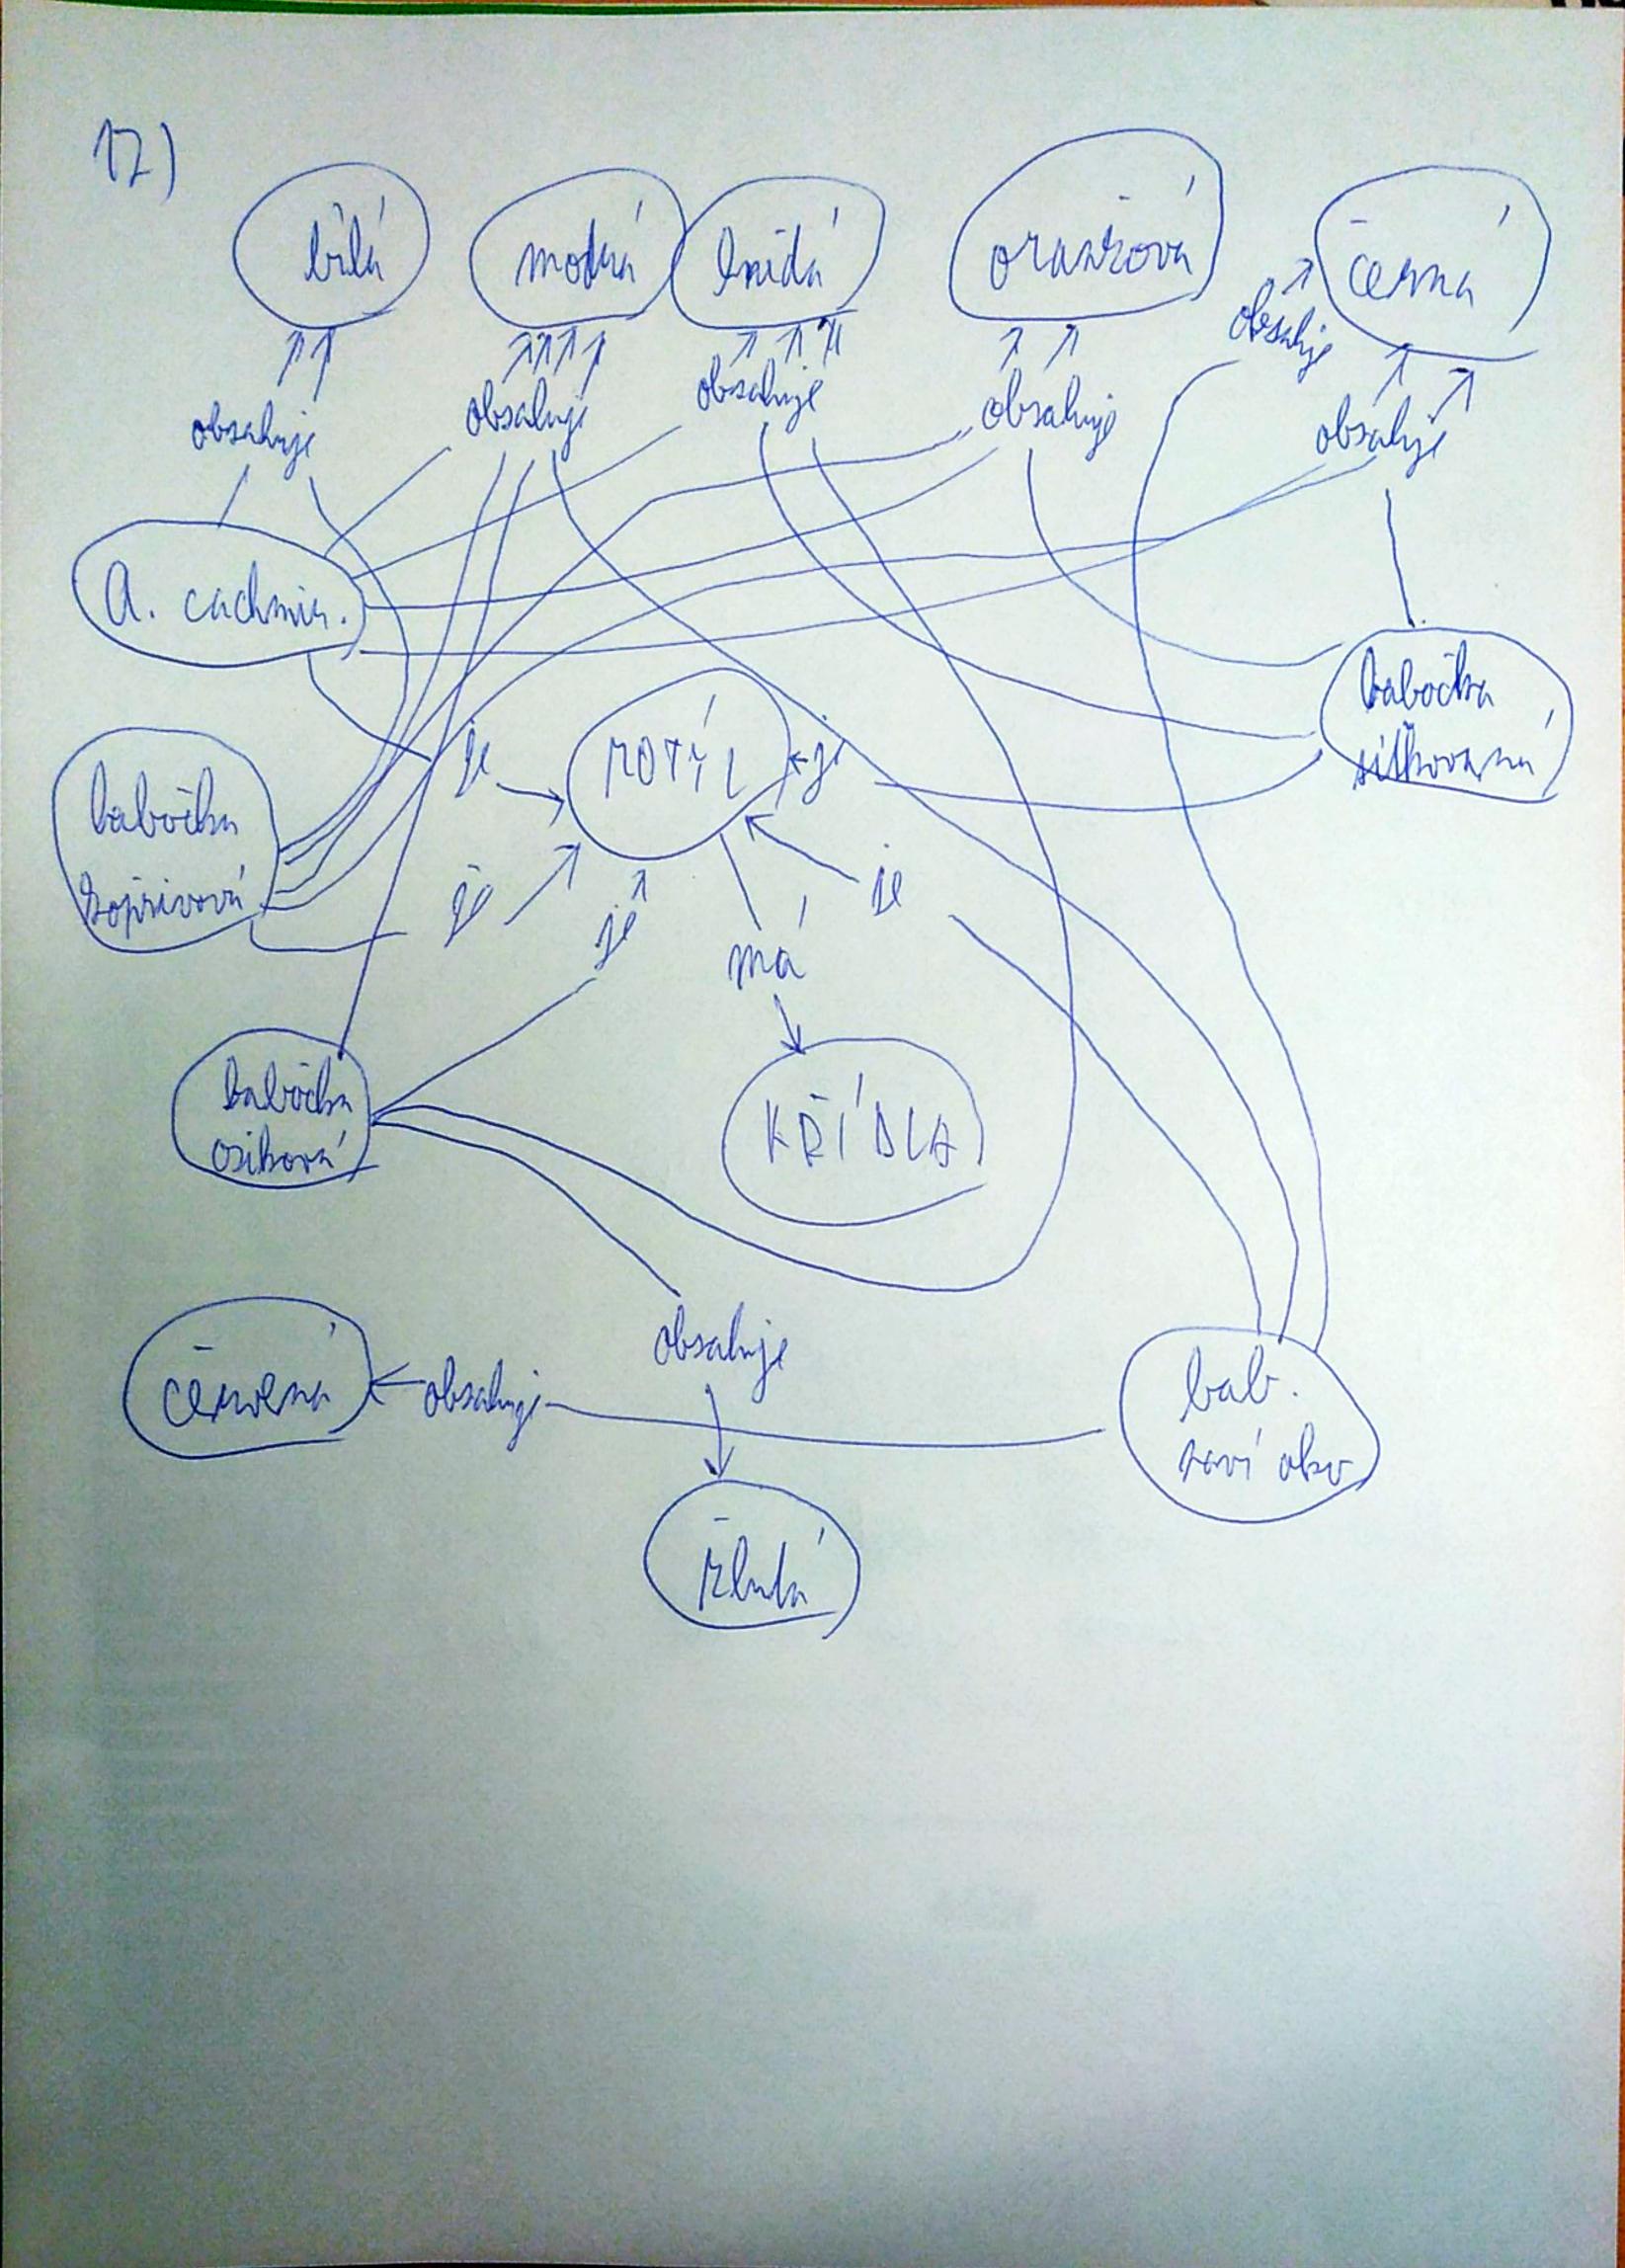 17)
bílá
modrá
hnědá
oranžová
černá
obsahuje
obsahuje
obsahuje
obsahuje
obsahuje
obsahuje
A. cachmir.
babočka
síťkovaná
babočka
kopřivová
je
MOTÝL
je
je
je
je
má
babočka
osiková
KŘÍDLA
obsahuje
červená
obsahuje
bab.
paví oko
žlutá